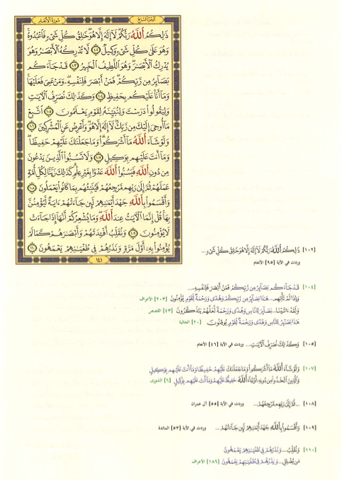 الجزء السابع سورة الأنعام
ذَٰلِكُمُ ٱللَّهُ رَبُّكُمْ لَآ إِلَٰهَ إِلَّا هُوَ خَٰلِقُ كُلِّ شَىْءٍ فَٱعْبُدُوهُ
وَهُوَ عَلَىٰ كُلِّ شَىْءٍ وَكِيلٌ ١٠٢ لَّا تُدْرِكُهُ ٱلْأَبْصَٰرُ وَهُوَ
يُدْرِكُ ٱلْأَبْصَٰرَ وَهُوَ ٱللَّطِيفُ ٱلْخَبِيرُ ١٠٣ قَدْ جَآءَكُم
بَصَآئِرُ مِن رَّبِّكُمْ فَمَنْ أَبْصَرَ فَلِنَفْسِهِۦ وَمَنْ عَمِىَ فَعَلَيْهَا
وَمَآ أَنَا۠ عَلَيْكُم بِحَفِيظٍ ١٠٤ وَكَذَٰلِكَ نُصَرِّفُ ٱلْءَايَٰتِ
وَلِيَقُولُوا۟ دَرَسْتَ وَلِنُبَيِّنَهُۥ لِقَوْمٍ يَعْلَمُونَ ١٠٥ ٱتَّبِعْ
مَآ أُوحِىَ إِلَيْكَ مِن رَّبِّكَ لَآ إِلَٰهَ إِلَّا هُوَ وَأَعْرِضْ عَنِ ٱلْمُشْرِكِينَ ١٠٦
وَلَوْ شَآءَ ٱللَّهُ مَآ أَشْرَكُوا۟ وَمَا جَعَلْنَٰكَ عَلَيْهِمْ حَفِيظًا
وَمَآ أَنتَ عَلَيْهِم بِوَكِيلٍ ١٠٧ وَلَا تَسُبُّوا۟ ٱلَّذِينَ يَدْعُونَ
مِن دُونِ ٱللَّهِ فَيَسُبُّوا۟ ٱللَّهَ عَدْوًۢا بِغَيْرِ عِلْمٍ كَذَٰلِكَ زَيَّنَّا لِكُلِّ أُمَّةٍ
عَمَلَهُمْ ثُمَّ إِلَىٰ رَبِّهِم مَّرْجِعُهُمْ فَيُنَبِّئُهُم بِمَا كَانُوا۟ يَعْمَلُونَ ١٠٨
وَأَقْسَمُوا۟ بِٱللَّهِ جَهْدَ أَيْمَٰنِهِمْ لَئِن جَآءَتْهُمْ ءَايَةٌ لَّيُؤْمِنُنَّ
بِهَا قُلْ إِنَّمَا ٱلْءَايَٰتُ عِندَ ٱللَّهِ وَمَا يُشْعِرُكُمْ أَنَّهَآ إِذَا جَآءَتْ
لَا يُؤْمِنُونَ ١٠٩ وَنُقَلِّبُ أَفْـِٔدَتَهُمْ وَأَبْصَٰرَهُمْ كَمَا لَمْ
يُؤْمِنُوا۟ بِهِۦٓ أَوَّلَ مَرَّةٍ وَنَذَرُهُمْ فِى طُغْيَٰنِهِمْ يَعْمَهُونَ ١١٠
١٤١
(١٠٢) ذَٰلِكُمُ ٱللَّهُ رَبُّكُمْ لَآ إِلَٰهَ إِلَّا هُوَ خَٰلِقُ كُلِّ شَىْءٍ...
وردت في الآية [٩٥] الأنعام
(١٠٤) قَدْ جَآءَكُم بَصَآئِرُ مِن رَّبِّكُمْ فَمَنْ أَبْصَرَ فَلِنَفْسِهِۦ...
هَٰذَا بَصَآئِرُ مِن رَّبِّكُمْ وَهُدًى وَرَحْمَةٌ لِّقَوْمٍ يُؤْمِنُونَ [٢٠٣] الأعراف
بَصَآئِرَ لِلنَّاسِ وَهُدًى وَرَحْمَةً لَّعَلَّهُمْ يَتَذَكَّرُونَ [٤٣] القصص
هَٰذَا بَصَٰٓئِرُ لِلنَّاسِ وَهُدًى وَرَحْمَةٌ لِّقَوْمٍ يُوقِنُونَ [٢٠] الجاثية
(١٠٥) وَكَذَٰلِكَ نُصَرِّفُ ٱلْءَايَٰتِ... وردت في الآية [٤٦] الأنعام
(١٠٧) وَلَوْ شَآءَ ٱللَّهُ مَآ أَشْرَكُوا۟ وَمَا جَعَلْنَٰكَ عَلَيْهِمْ حَفِيظًا وَمَآ أَنتَ عَلَيْهِم بِوَكِيلٍ
وَٱلَّذِينَ ٱتَّخَذُوا۟ مِن دُونِهِۦٓ أَوْلِيَآءَ ٱللَّهُ حَفِيظٌ عَلَيْهِمْ وَمَآ أَنتَ عَلَيْهِم بِوَكِيلٍ [٦] الشورى
(١٠٨) ...ثُمَّ إِلَىٰ رَبِّهِم مَّرْجِعُهُمْ... وردت في الآية [٥٥] آل عمران
(١٠٩) وَأَقْسَمُوا۟ بِٱللَّهِ جَهْدَ أَيْمَٰنِهِمْ لَئِن جَآءَتْهُمْ... وردت في الآية [٥٣] المائدة
(١١٠) وَنُقَلِّبُ... وَنَذَرُهُمْ فِى طُغْيَٰنِهِمْ يَعْمَهُونَ
مَن يُضْلِلِ... وَيَذَرُهُمْ فِى طُغْيَٰنِهِمْ يَعْمَهُونَ [١٨٦] الأعراف